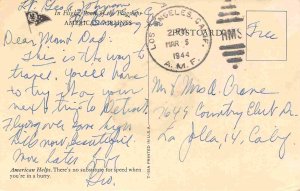 AMERICAN AIRLINES
Dear Mom & Dad
This is the way to
travel. You'll have
to try it on your
next trip to Detroit
Flying over
It's now beautiful
More later
American Helps. There's no substitute for speed when
you're in a hurry.
POSTCARD
LOS ANGELES, CALIF.
MAR 5
1944
A.M.F.
Free
Mr & Mrs A. Crane
7644 Country Club Dr
La Jolla, 14, Calif